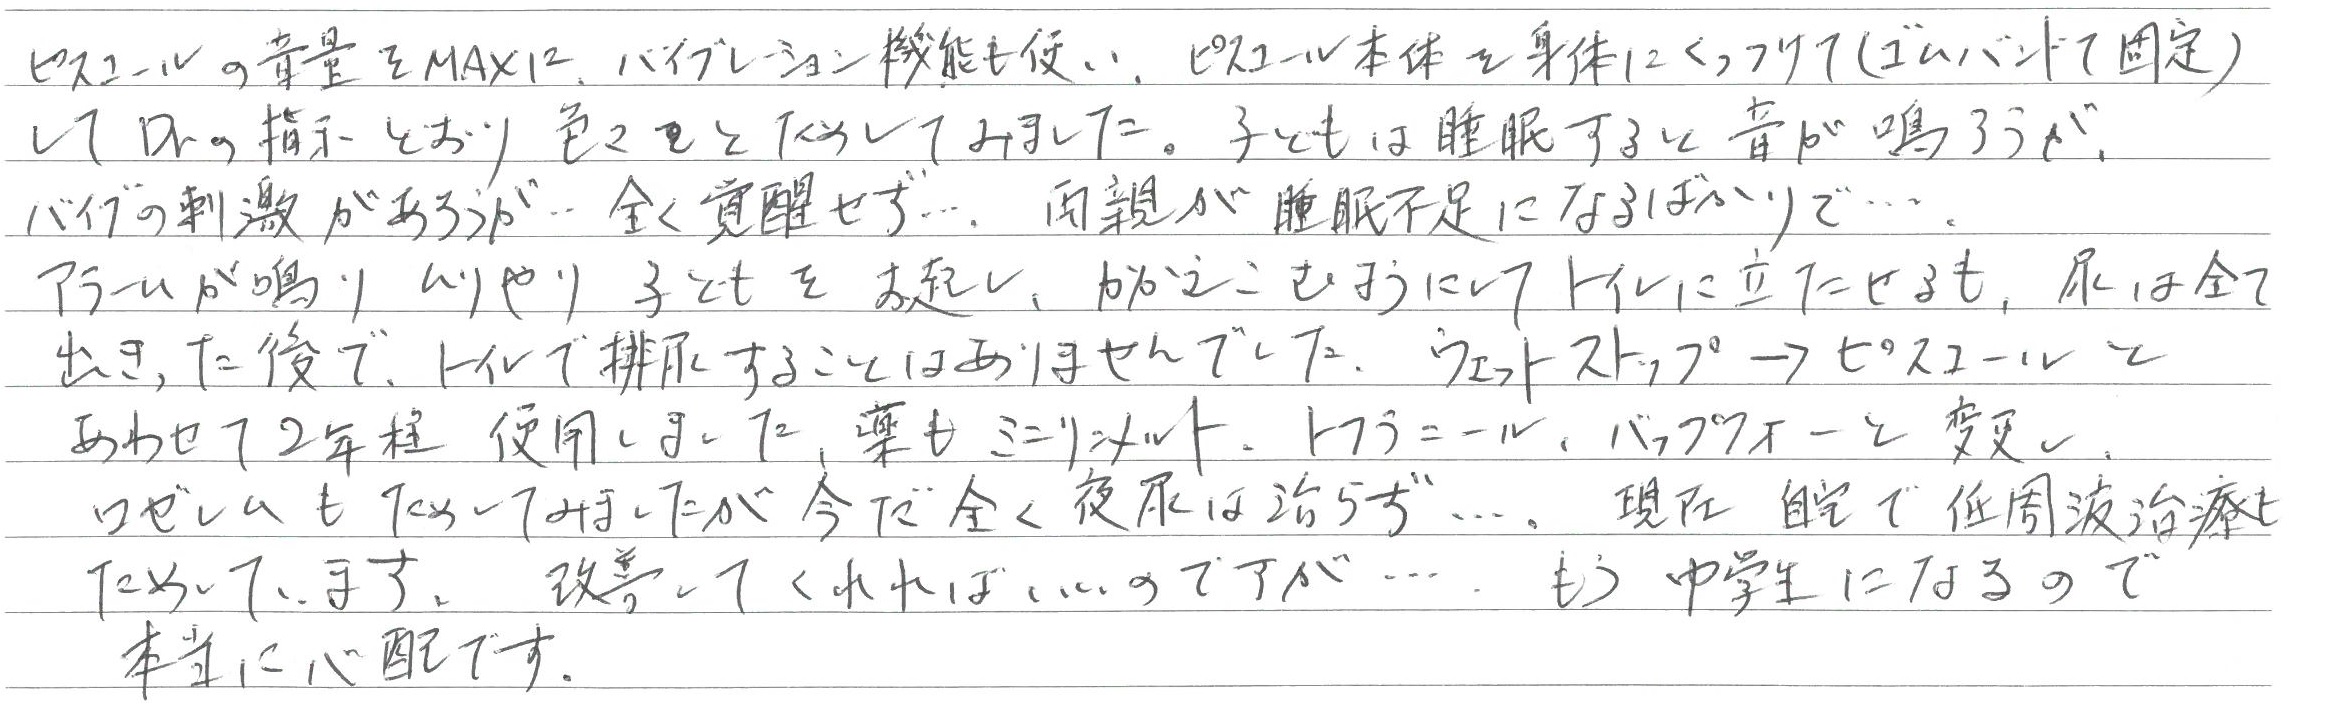 ピスコールの音量をMAXに、バイブレーション機能も使い、ピスコール本体を身体にくっつけて(ゴムバンドで固定)
してDrの指示どおり色々とためしてみました。子どもは睡眠すると音が鳴ろうが、
バイブの刺激があろうが…全く覚醒せず…、両親が睡眠不足になるばかりで…、
アラームが鳴りムリやり子どもをお起し、かかえこむようにしてトイレに立たせるも、尿は全て
出きった後で、トイレで排尿することはありませんでした。ウェットストップ→ピスコールと
あわせて2年程使用しました、薬もミニリンメルト、トフラニール、バップフォーと変更し、
ロゼレムもためしてみましたが今だ全く夜尿は治らず…。現在自宅で低周波治療も
ためしています。改善してくれればいいのですが…。もう中学生になるので
本当に心配です。